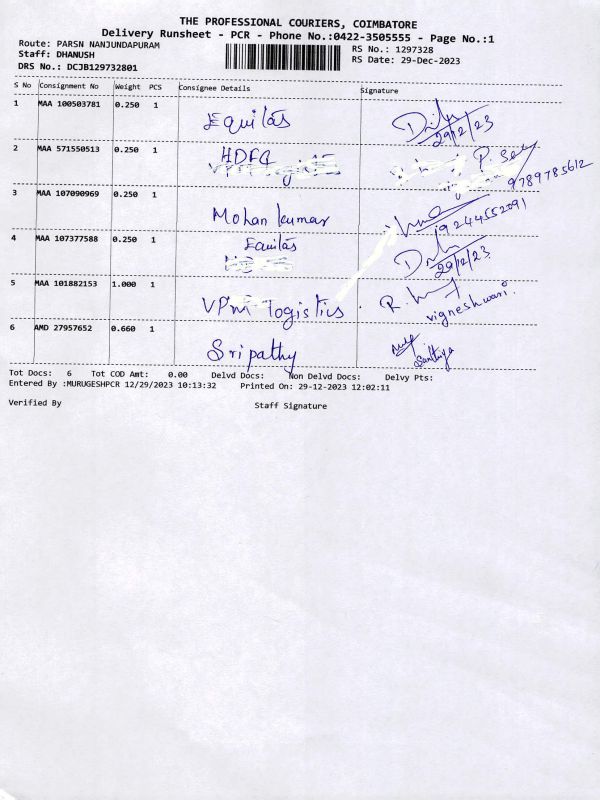 THE PROFESSIONAL COURIERS, COIMBATORE
Delivery Runsheet - PCR - Phone No.:0422-3505555 - Page No.:1
Route: PARSN NANJUNDAPURAM
RS No.: 1297328
Staff: DHANUSH
RS Date: 29-Dec-2023
DRS No.: DCJB129732801
S No Consignment No Weight PCS Consignee Details Signature
1 MAA 100503781 0.250 1 Equitas
29/12/23
2 MAA 571550513 0.250 1 HDFC
9789785612
3 MAA 107090969 0.250 1 Mohan kumar
9244552091
4 MAA 107377588 0.250 1 Equitas
29/12/23
5 MAA 101882153 1.000 1 VPM logistics
vigneshwari.
6 AMD 27957652 0.660 1 Sripathy
Tot Docs: 6 Tot COD Amt: 0.00 Delvd Docs: Non Delvd Docs: Delvy Pts:
Entered By :MURUGESHPCR 12/29/2023 10:13:32 Printed On: 29-12-2023 12:02:11
Verified By Staff Signature